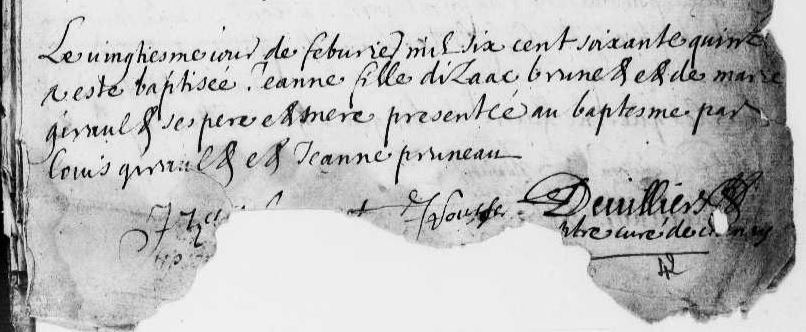 Le vingtiesme iour de feburier mil six cent soixante quinze
a este baptisee Jeanne fille dizaac brunet et de marie
girault ses pere et mere presentée au baptesme par
Louis girault et Jeanne pruneau
Devilliers
cure de
42